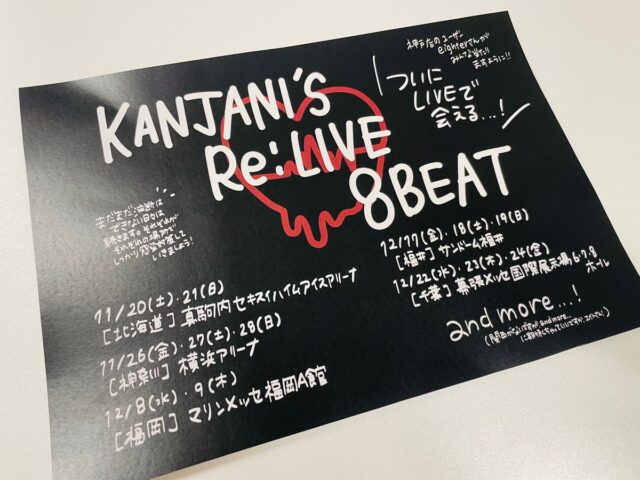 KANJANI'S
Re:LIVE
8BEAT
神戸店のユーザー
eighterさんが
みんな当たり
ますように!!
ついに
LIVEで
会える...!
まだまだ油断は
できない日々は
続きます。それぞれが
それぞれの場所で
しっかり感染対策して
いきましょう!
11/20(土)・21(日)
[北海道] 真駒内セキスイハイムアイスアリーナ
11/26(金)・27(土)・28(日)
[神奈川] 横浜アリーナ
12/8(水)・9(木)
[福岡] マリンメッセ福岡A館
12/17(金)・18(土)・19(日)
[福井] サンドーム福井
12/22(水)・23(木)・24(金)
[千葉] 幕張メッセ国際展示場6・7・8
ホール
and more...!
(関西がないですが and more..
に期待しちゃっていいですか、エイトさん)